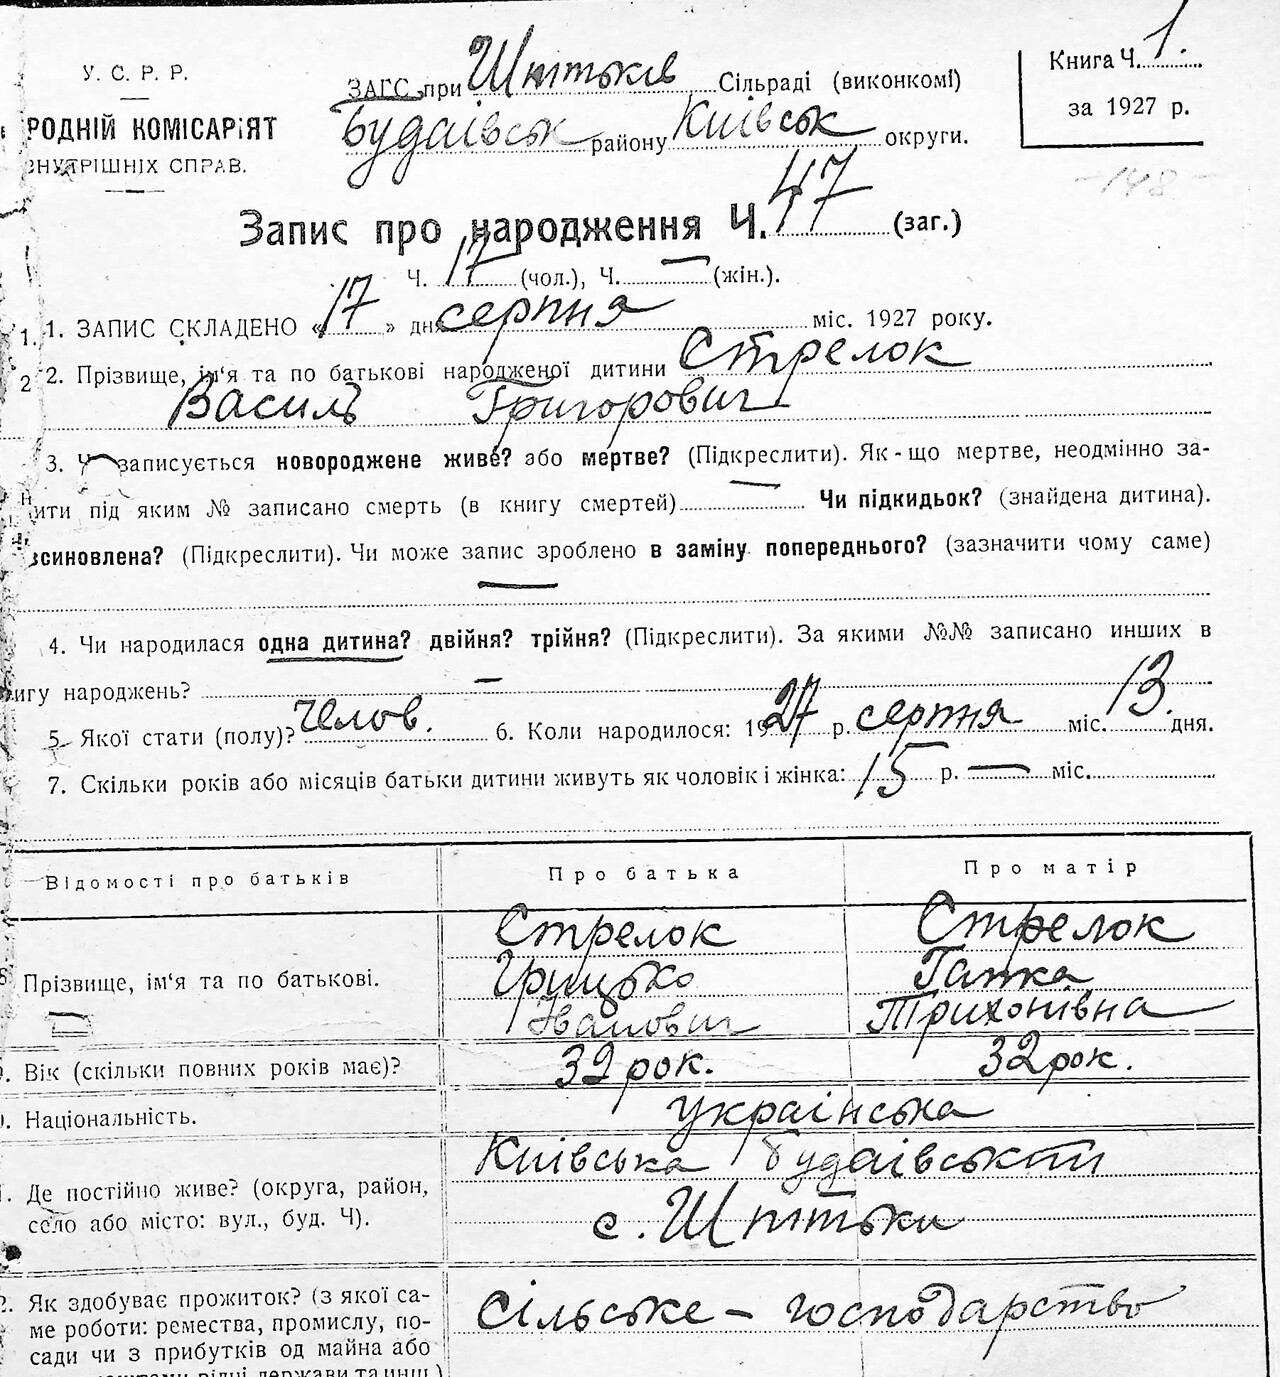 У. С. Р. Р.
РОДНІЙ КОМІСАРІЯТ
ВНУТРІШНІХ СПРАВ.
ЗАГС при Шпітьків Сільраді (виконкомі)
Будаївськ району Київськ округи.
Книга Ч. 1.
за 1927 р.
148
Запис про народження Ч. 47 (заг.)
Ч. 17 (чол.), Ч. — (жін.).
1. 1. ЗАПИС СКЛАДЕНО « 17 » дня серпня міс. 1927 року.
2 2. Прізвище, ім'я та по батькові народженої дитини Стрелок
Василь Григорович
3. Чи записується новороджене живе? або мертве? (Підкреслити). Як-що мертве, неодмінно за-
ити під яким № записано смерть (в книгу смертей) — Чи підкидьок? (знайдена дитина).
всиновлена? (Підкреслити). Чи може запис зроблено в заміну попереднього? (зазначити чому саме)
—
4. Чи народилася одна дитина? двійня? трійня? (Підкреслити). За якими №№ записано инших в
нигу народжень? —
5. Якої стати (полу)? челов. 6. Коли народилося: 1927 р. серпня міс. 13 дня.
7. Скільки років або місяців батьки дитини живуть як чоловік і жінка: 15 р. — міс.
Відомості про батьків Про батька Про матір
8 Прізвище, ім'я та по батькові. Стрелок Стрелок
Грицько Гапка
Іванович Трихонівна
9. Вік (скільки повних років має)? 39 рок. 32 рок.
0. Національність. українська
1. Де постійно живе? (округа, район, село або місто: вул., буд. Ч). Київська Будаївський
с. Шпітьки
2. Як здобуває прожиток? (з якої са- Сільське – господарство
ме роботи: ремества, промислу, по-
сади чи з прибутків од майна або
коштами відні держави та инш.)